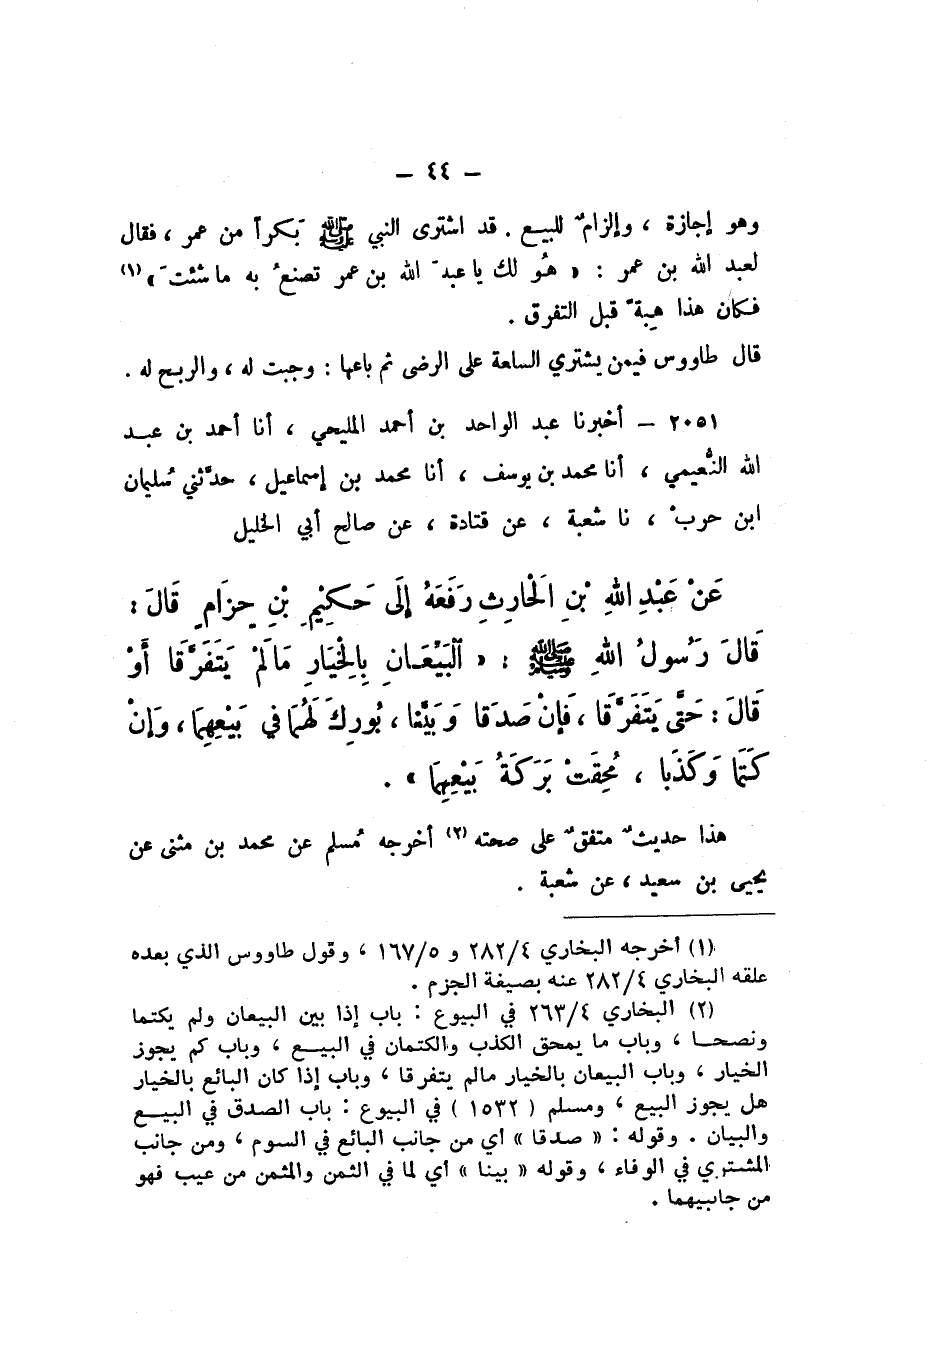 — ٤٤ —
وهو إجازة ، وإلزامٌ للبيع . قد اشترى النبي ﷺ بَكراً من عمر ، فقال
لعبد الله بن عمر : « هُو لك يا عبدَ الله بن عمر تصنعُ به ما شئتَ » (١)
فكان هذا هِبةً قبل التفرق .
قال طاووس فيمن يشتري السلعة على الرضى ثم باعها : وجبت له ، والربح له .
٢٠٥١ — أخبرنا عبد الواحد بن أحمد المليحي ، أنا أحمد بن عبد
الله النُّعيمي ، أنا محمد بن يوسف ، أنا محمد بن إسماعيل ، حدَّثني سُليمان
ابن حربْ ، نا شعبة ، عن قتادة ، عن صالح أبي الخليل
عَنْ عَبْدِ اللهِ بْنِ الْحَارِثِ رَفَعَهُ إِلَى حَكِيْمِ بْنِ حِزَامٍ قَالَ :
قَالَ رَسُولُ اللهِ ﷺ : « اَلْبَيِّعَانِ بِالْخِيَارِ مَا لَمْ يَتَفَرَّقَا أَوْ
قَالَ : حَتَّى يَتَفَرَّقَا ، فَإِنْ صَدَقَا وَبَيَّنَا ، بُورِكَ لَهُمَا فِي بَيْعِهِمَا ، وَإِنْ
كَتَمَا وَكَذَبَا ، مُحِقَتْ بَرَكَةُ بَيْعِهِمَا » .
هذا حديثٌ متفقٌ على صحته (٢) أخرجه مُسلم عن محمد بن مثنى عن
يحيى بن سعيد ، عن شعبة .
(١) أخرجه البخاري ٢٨٢/٤ و ١٦٧/٥ ، وقول طاووس الذي بعده
علقه البخاري ٢٨٢/٤ عنه بصيغة الجزم .
(٢) البخاري ٢٦٣/٤ في البيوع : باب إذا بين البيعان ولم يكتما
ونصحا ، وباب ما يمحق الكذب والكتمان في البيع ، وباب كم يجوز
الخيار ، وباب البيعان بالخيار مالم يتفرقا ، وباب إذا كان البائع بالخيار
هل يجوز البيع ، ومسلم ( ١٥٣٢ ) في البيوع : باب الصدق في البيع
والبيان . وقوله : « صدقا » أي من جانب البائع في السوم ، ومن جانب
المشتري في الوفاء ، وقوله « بينا » أي لما في الثمن والمثمن من عيب فهو
من جانبيهما .